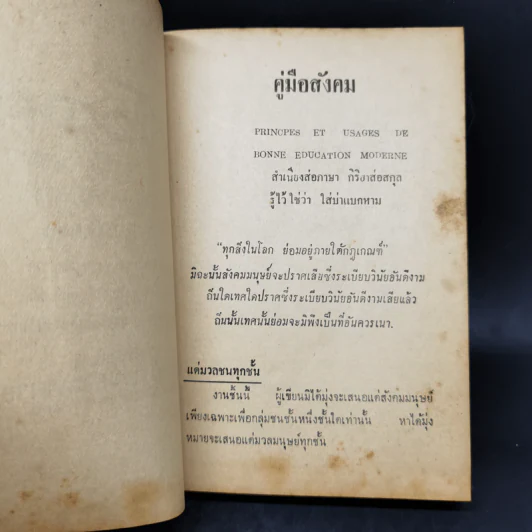 คู่มือสังคม
PRINCPES ET USAGES DE
BONNE EDUCATION MODERNE
สำเนียงส่อภาษา กิริยาส่อสกุล
รู้ไว้ใช่ว่า ใส่บ่าแบกหาม
"ทุกสิ่งในโลก ย่อมอยู่ภายใต้กฎเกณฑ์"
มิฉะนั้นสังคมมนุษย์จะปราศเสียซึ่งระเบียบวินัยอันดีงาม
ถิ่นใดเทศใดปราศซึ่งระเบียบวินัยอันดีงามเสียแล้ว
ถิ่นนั้นเทศนั้นย่อมจะมิพึงเป็นที่อันควรเนา.
แด่มวลชนทุกชั้น
งานชิ้นนี้ ผู้เขียนมิได้มุ่งจะเสนอแด่สังคมมนุษย์
เพียงเฉพาะเพื่อกลุ่มชนชั้นหนึ่งชั้นใดเท่านั้น หาได้มุ่ง
หมายจะเสนอแด่มวลมนุษย์ทุกชั้น